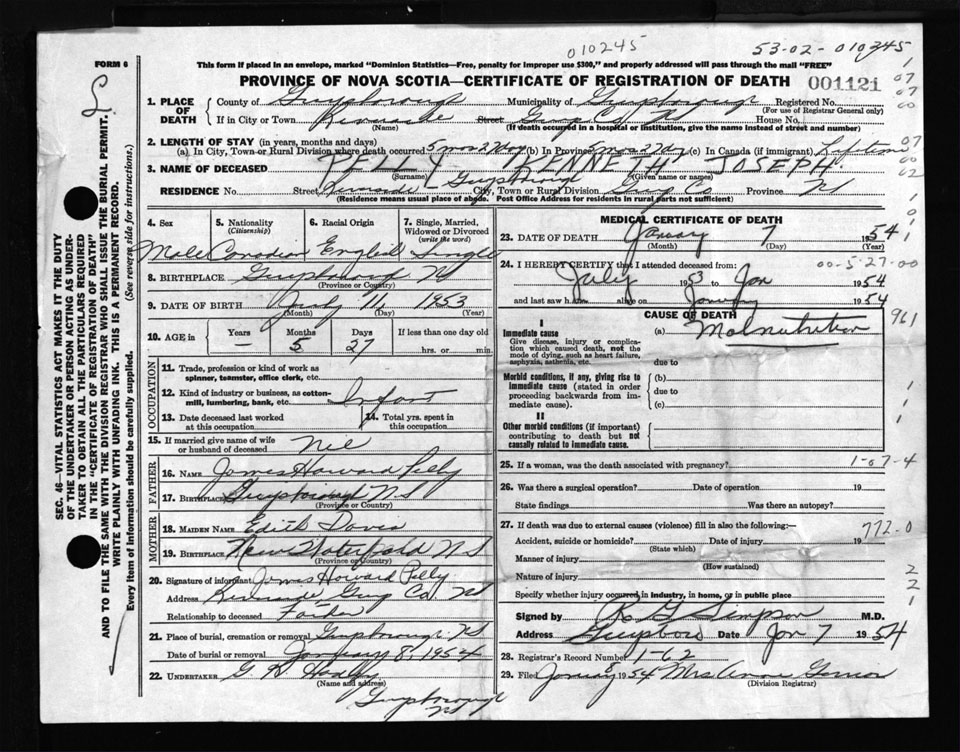 010245
53-02-010245
FORM 6
This form if placed in an envelope, marked "Dominion Statistics—Free, penalty for improper use $300," and properly addressed will pass through the mail "FREE"
PROVINCE OF NOVA SCOTIA—CERTIFICATE OF REGISTRATION OF DEATH
001121
SEC. 46—VITAL STATISTICS ACT MAKES IT THE DUTY
OF THE UNDERTAKER OR PERSON ACTING AS UNDER-
TAKER TO OBTAIN ALL THE PARTICULARS REQUIRED
IN THE "CERTIFICATE OF REGISTRATION OF DEATH"
AND TO FILE THE SAME WITH THE DIVISION REGISTRAR WHO SHALL ISSUE THE BURIAL PERMIT.
WRITE PLAINLY WITH UNFADING INK. THIS IS A PERMANENT RECORD.
Every item of information should be carefully supplied. (See reverse side for instructions.)
1. PLACE OF DEATH
County of Guysborough Municipality of Guysborough Registered No.
(For use of Registrar General only)
If in City or Town Riverside Street Guys Co. NS House No.
(Name) (If death occurred in a hospital or institution, give the name instead of street and number)
2. LENGTH OF STAY (in years, months and days)
(a) In City, Town or Rural Division where death occurred 5 mos 27 dy (b) In Province 5 mos 27 dy (c) In Canada (if immigrant) Lifetime
3. NAME OF DECEASED PELLY KENNETH JOSEPH
(Surname) (Given name or names)
RESIDENCE No. Street Riverside Guysborough City, Town or Rural Division Guys Co Province NS
(Residence means usual place of abode. Post Office Address for residents in rural parts not sufficient)
4. Sex
Male
5. Nationality (Citizenship)
Canadian
6. Racial Origin
English
7. Single, Married, Widowed or Divorced (write the word)
Single
8. BIRTHPLACE Guysborough NS
(Province or Country)
9. DATE OF BIRTH July 11 1853
(Month) (Day) (Year)
10. AGE in Years Months Days If less than one day old
— 5 27 hrs. or min.
OCCUPATION
11. Trade, profession or kind of work as
spinner, teamster, office clerk, etc.
12. Kind of industry or business, as cotton-
mill, lumbering, bank, etc. Infant
13. Date deceased last worked
at this occupation
14. Total yrs. spent in
this occupation
15. If married give name of wife
or husband of deceased Nil
FATHER
16. NAME James Howard Pelly
17. BIRTHPLACE Guysborough N.S
(Province or Country)
MOTHER
18. MAIDEN NAME Edith Davis
19. BIRTHPLACE New Waterford NS
(Province or Country)
20. Signature of informant James Howard Pelly
Address Riverside Guys Co. NS
Relationship to deceased Father
21. Place of burial, cremation or removal Guysborough NS
Date of burial or removal January 8, 1954
22. UNDERTAKER G H
(Name and address)
Guysborough
NS
MEDICAL CERTIFICATE OF DEATH
23. DATE OF DEATH January 7 1954
(Month) (Day) (Year)
24. I HEREBY CERTIFY that I attended deceased from: 00-5-27-00
July 1953 to Jan 1954
and last saw h alive on January 1954
CAUSE OF DEATH
I
Immediate cause
Give disease, injury or complica-
tion which caused death, not the
mode of dying, such as heart failure,
asphyxia, asthenia, etc.
(a) Malnutrition
961
due to
Morbid conditions, if any, giving rise to
immediate cause (stated in order
proceeding backwards from im-
mediate cause).
(b)
due to
(c)
II
Other morbid conditions (if important)
contributing to death but not
causally related to immediate cause.
25. If a woman, was the death associated with pregnancy? 1-07-4
26. Was there a surgical operation? Date of operation 19
State findings Was there an autopsy?
27. If death was due to external causes (violence) fill in also the following:—
772-0
Accident, suicide or homicide? Date of injury 19
(State which)
Manner of injury
(How sustained)
Nature of injury
Specify whether injury occurred in industry, in home, or in public place
Signed by R G Simpson M.D.
Address Guysboro Date Jan 7 1954
28. Registrar's Record Number 1-62
29. Filed January 8 1954 Mrs Annie
(Division Registrar)